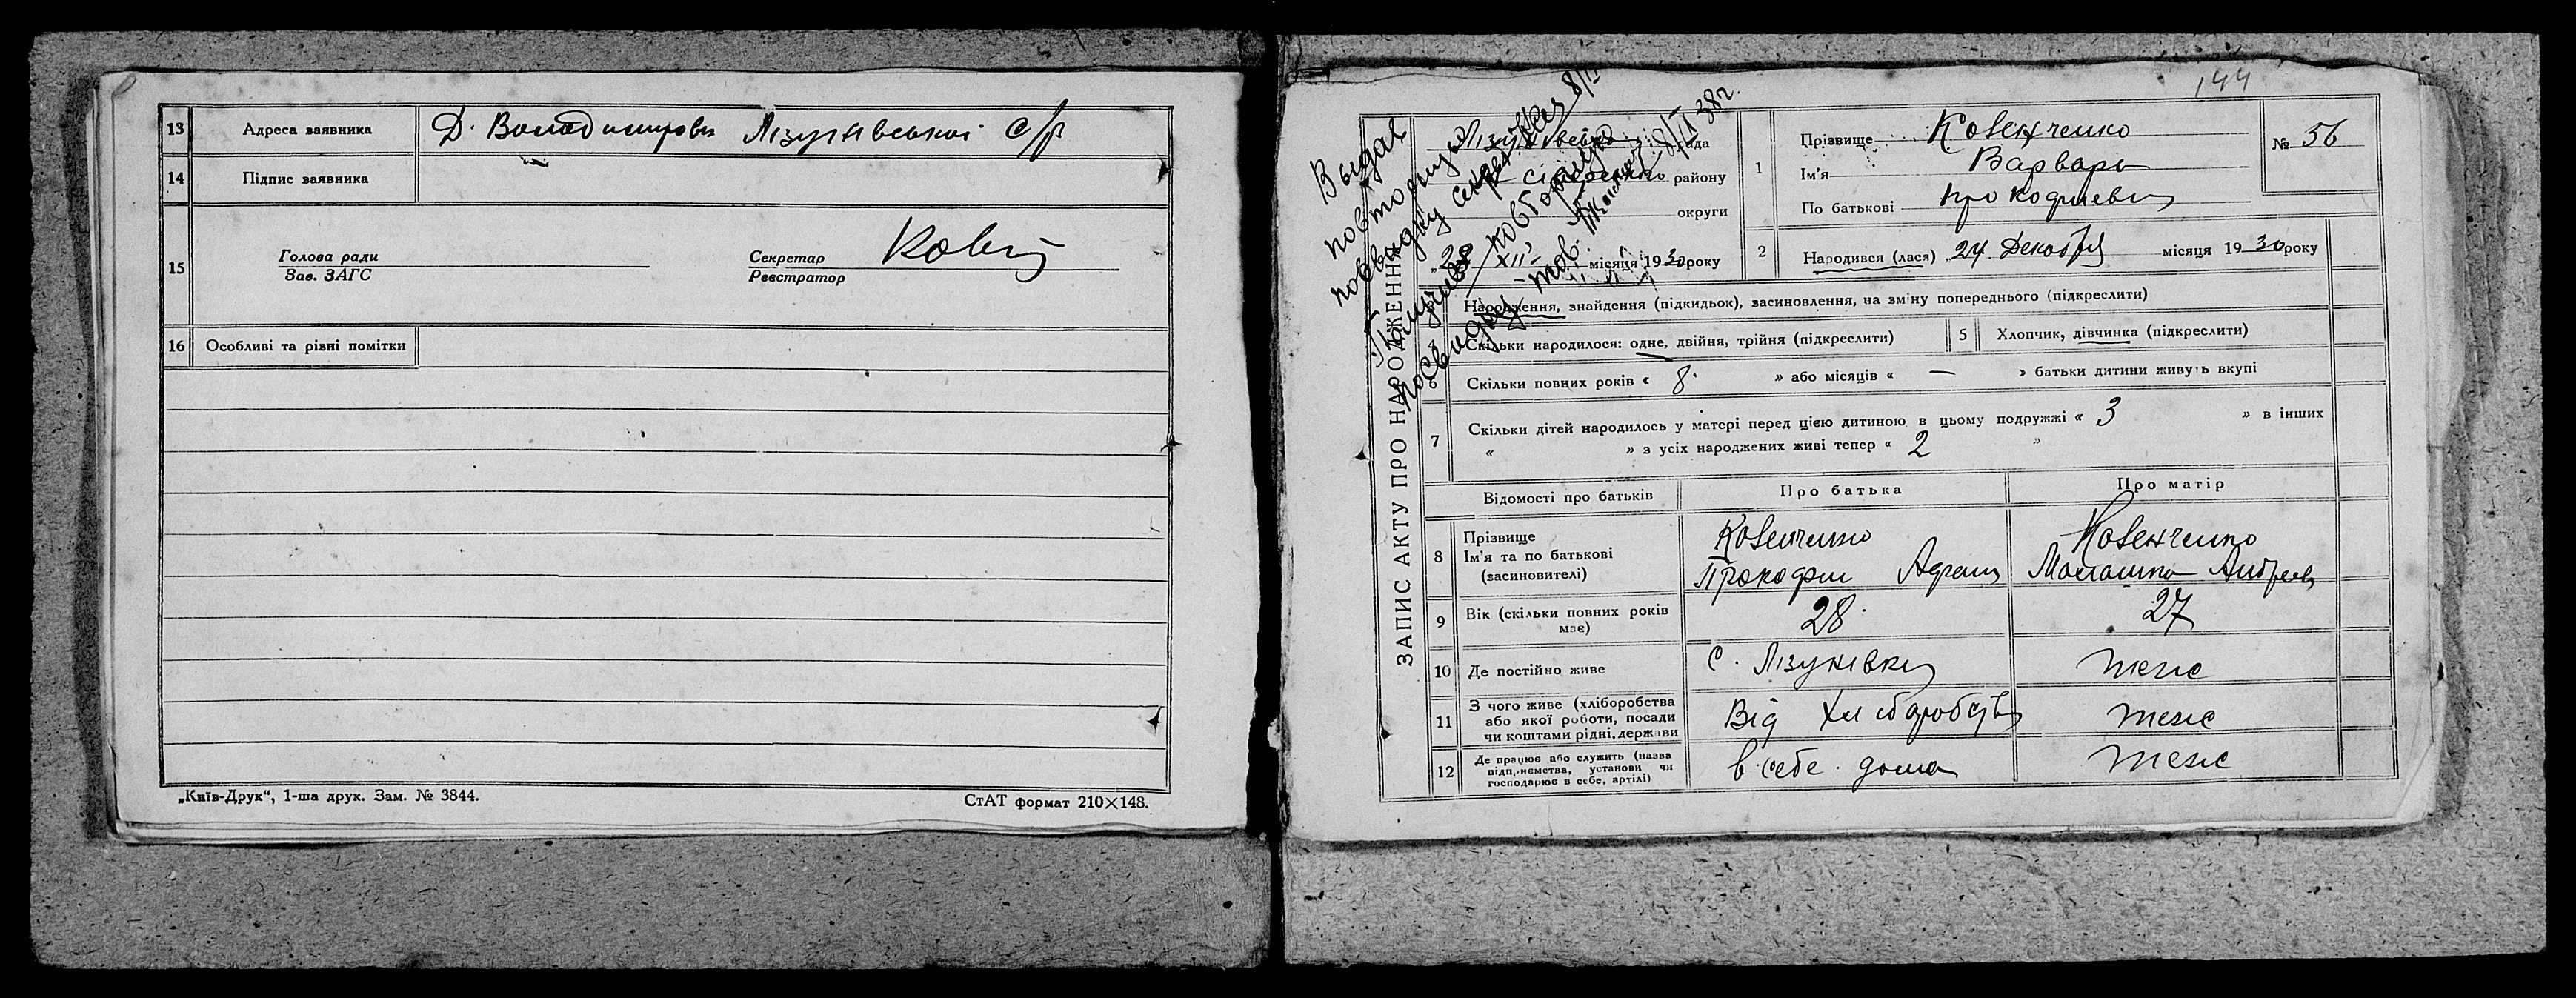 13 Адреса заявника Д. Володимировка Лізунівської С/р
14 Підпис заявника
15
Голова ради
Зав. ЗАГС
Секретар
Реєстратор
16 Особливі та різні помітки
„Київ-Друк“, 1-ша друк. Зам. № 3844.
СтАТ формат 210×148.
144
ЗАПИС АКТУ ПРО НАРОДЖЕННЯ
Выдав
повторную
посвидку
8/I 38г.
рада
району
округи
XII місяця 1930 року
1 Прізвище Ковенченко
Ім'я Варвара
По батькові Прокофиевна
№ 56
2 Народився (лася) „24 Декабря місяця 1930 року
Народження, знайдення (підкидьок), засиновлення, на зміну попереднього (підкреслити)
Скільки народилося: одне, двійня, трійня (підкреслити)
5 Хлопчик, дівчинка (підкреслити)
6 Скільки повних років « 8 » або місяців « — » батьки дитини живуть вкупі
7 Скільки дітей народилось у матері перед цією дитиною в цьому подружжі « 3 » в інших
« » з усіх народжених живі тепер « 2 »
Відомості про батьків Про батька Про матір
8 Прізвище
Ім'я та по батькові
(засиновителі)
Ковенченко
Прокофий
Ковенченко
9 Вік (скільки повних років
має)
28
27
10 Де постійно живе с. Лізунівка теж
11 З чого живе (хліборобства
або якої роботи, посади
чи коштами рідні, держави
Від Хліборобства
теж
12 Де працює або служить (назва
підприємства, установи чи
господарює в себе, артілі)
в себе дома
теж